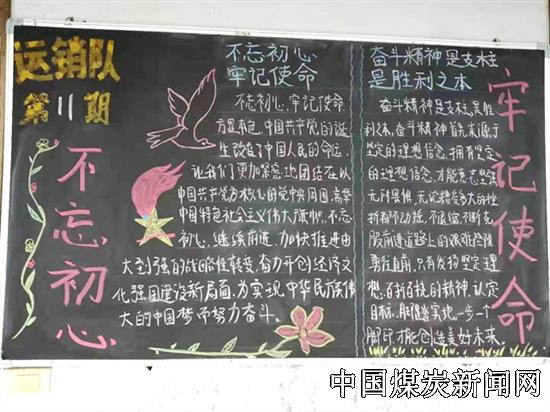 运销队
第11期
不忘初心
不忘初心
牢记使命
不忘初心,牢记使命
方显本色,中国共产党的诞
生改变了中国人民的命运,
让我们更加紧密地团结在以
中国共产党为核心的党中央周围,高举
中国特色社会主义伟大旗帜,不忘
初心,继续前进,加快推进由
大到强的战略性转变,奋力开创经济文
化强国建设新局面,为实现中华民族伟
大的中国梦而努力奋斗。
奋斗精神是支柱
是胜利之本
奋斗精神是支柱,是胜
利之本,奋斗精神首先来源于
坚定的理想信念,拥有坚定
的理想信念,才能意志坚强
无所畏惧,无论遭受多大的挫
折都不动摇,不退缩,不断克
服前进道路上的艰难险阻
勇往直前,只有发扬坚定理
想,百折不挠的精神,认定
目标,脚踏实地,一步一个
脚印,才能创造美好未来。
牢记使命
中国煤炭新闻网